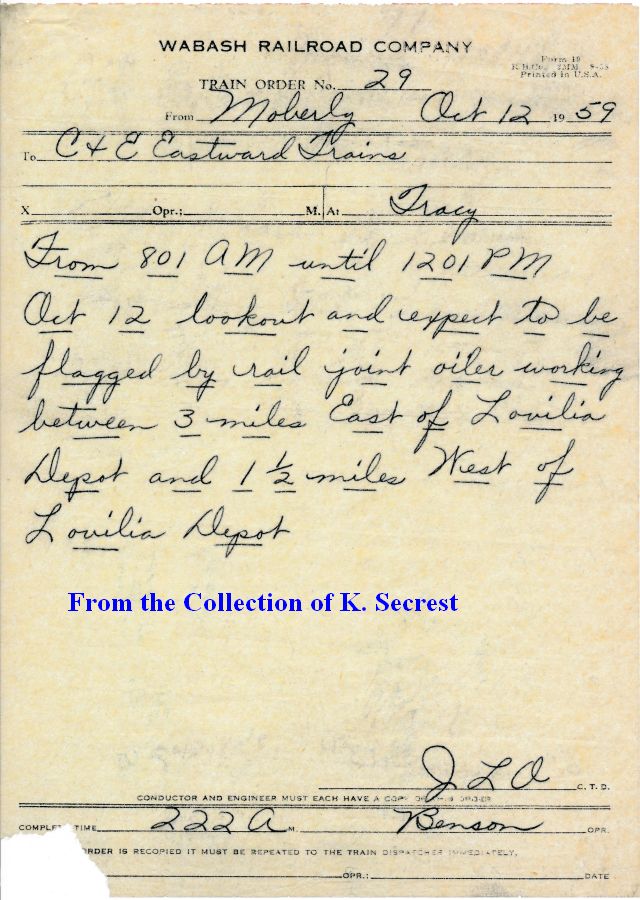 WABASH RAILROAD COMPANY
Form 19
Printed in U.S.A.
TRAIN ORDER No. 29
From Moberly Oct 12 1959
To C & E Eastward Trains
X Opr.: M. At Tracy
From 801 AM until 1201 PM
Oct 12 lookout and expect to be
flagged by rail joint oiler working
between 3 miles East of Lovilia
Depot and 1 1/2 miles West of
Lovilia Depot
From the Collection of K. Secrest
J L O C.T.D.
CONDUCTOR AND ENGINEER MUST EACH HAVE A COPY OF THIS ORDER
COMPLETE TIME 222 A M. Benson OPR.
ORDER IS RECOPIED IT MUST BE REPEATED TO THE TRAIN DISPATCHER IMMEDIATELY.
OPR.: DATE